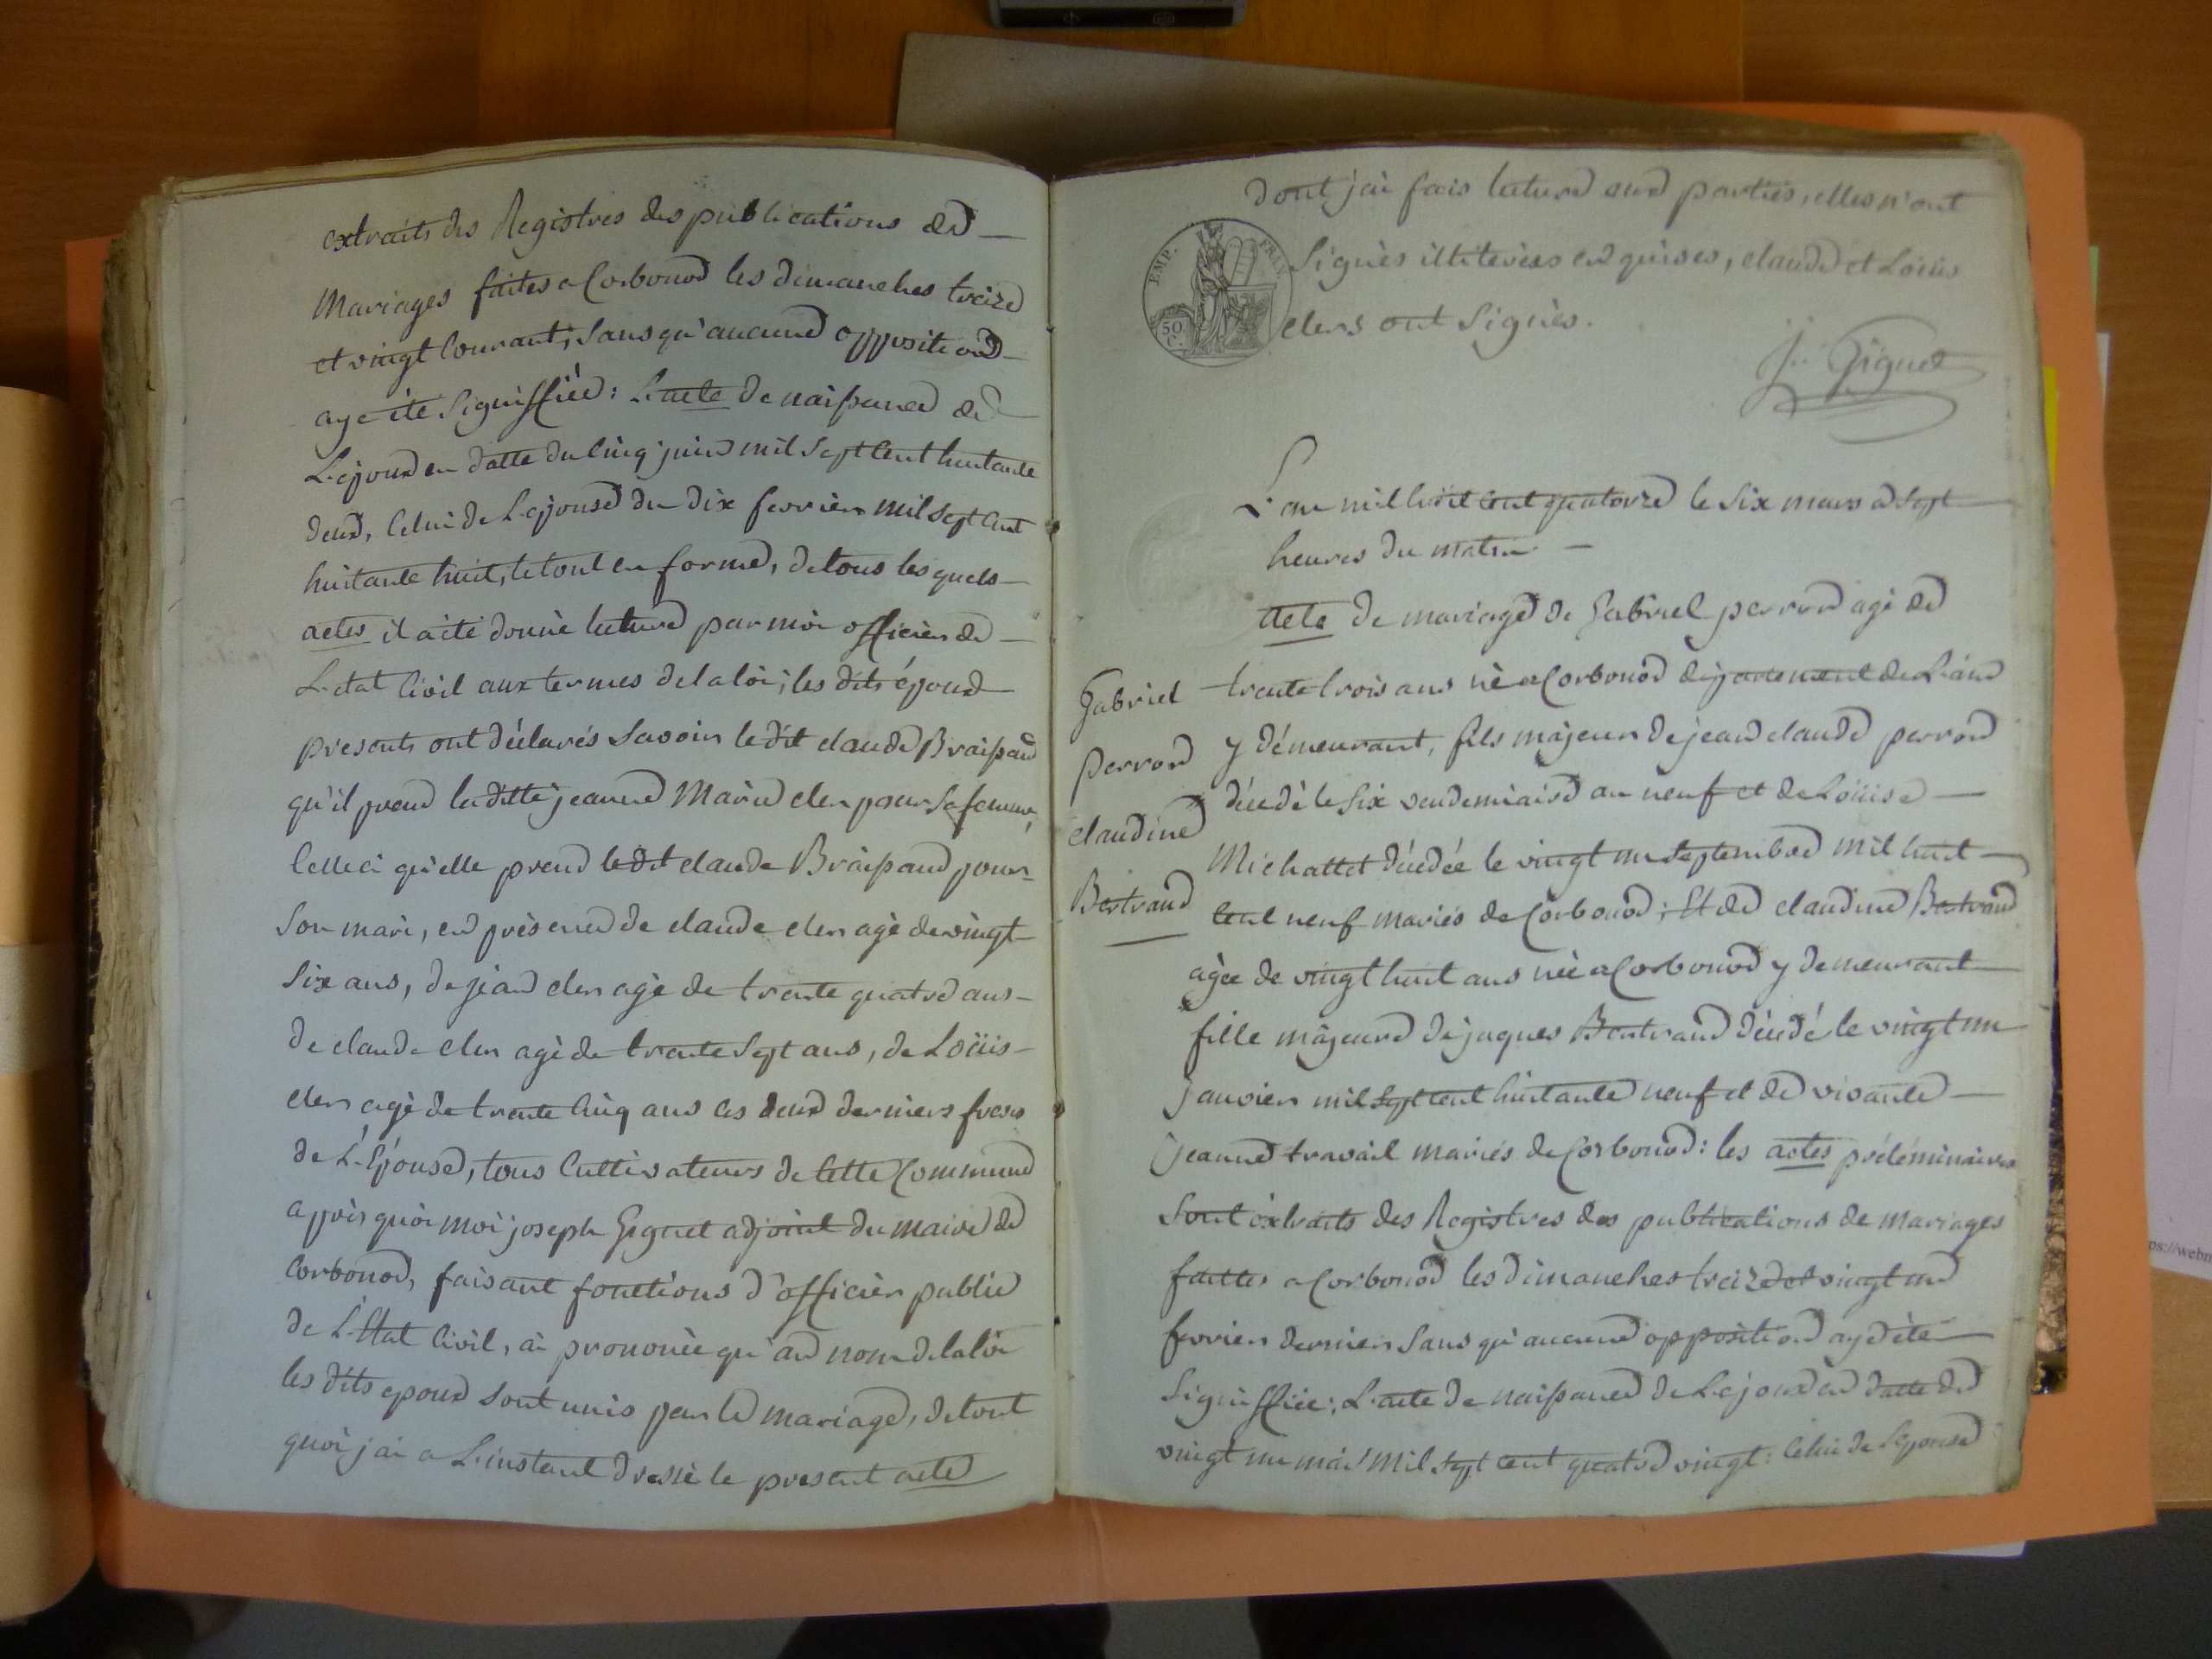 extraits des Registres des publications de
Mariages faites a Corbonod les dimanches treize
et vingt Courant, sans qu'aucune opposition
aye été signiffiée : L'acte de naissance de
L'epoux en datte du Cinq juin mil sept Cent huitante
deux, Celui de L'epouse du dix fevrier mil sept Cent
huitante huit, le tout en forme, de tous les quels
actes il a été donné lecture par moi officier de
L'etat Civil aux termes de la loi ; les dits époux
presents ont déclarés savoir le dit claude Braissand
qu'il prend la ditte jeanne Marie cler pour sa femme,
Celle ci qu'elle prend le dit claude Braissand pour
Son mari, en présence de claude cler agé de vingt
Six ans, de jean cler agé de trente quatre ans
de claude cler agé de trente Sept ans, de Loüis
cler agé de trente Cinq ans les deux derniers freres
de L'Epouse, tous Cultivateurs de Cette Commune
après quoi moi joseph Giguet adjoint du maire de
Corbonod, faisant fonctions d'officier public
de L'Etat Civil, ai prononcé qu'au nom de la loi
les dits epoux sont unis par le mariage, de tout
quoi j'ai a L'instant dressé le present acte
dont j'ai fais lecture aux parties, elles n'ont
Signés illiterées enquises, claude et Loüis
clers ont Signés.
EMP. FRAN
50
C.
J. Giguet
L'an mil huit cent quatorze le six mars a sept
heures du matin
Acte de mariage de Gabriel perron agé de
trente trois ans né a Corbonod département de L'ain
y démeurant, fils majeur de jean claude perron
décedé le six vendemiaire an neuf et de Loüise
Michattet décedée le vingt un septembre mil huit
Cent neuf mariés de Corbonod ; Et de claudine Bertrand
agée de vingt huit ans née a Corbonod y demeurant
fille majeure de jaques Bertrand décedé le vingt un
Janvier mil sept cent huitante neuf et de vivante
Jeanne travail mariés de Corbonod : les actes préléminaires
Sont éxtraits des Registres des publications de mariages
faittes a Corbonod les dimanches treize et vingt un
fevrier dernier sans qu'aucune opposition aye été
Signiffiée ; L'acte de naissance de L'epoux en datte du
vingt un mai mil sept cent quatre vingt : Celui de L'epouse
Gabriel
perron
claudine
Bertrand
ps://webm